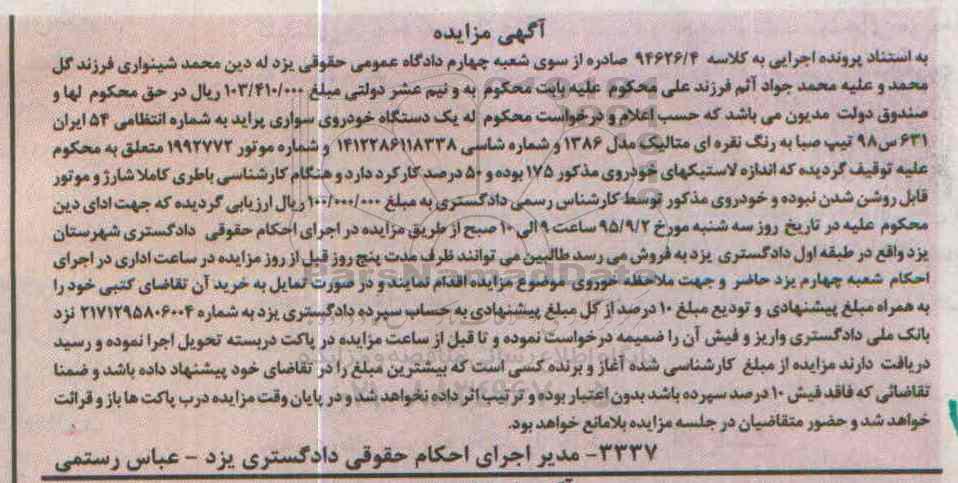 آگهی مزایده
به استناد پرونده اجرایی به کلاسه ۹۴۶۲۶/۴ صادره از سوی شعبه چهارم دادگاه عمومی حقوقی یزد له دین محمد شینواری فرزند گل
محمد و علیه محمد جواد آئم فرزند علی محکوم علیه بابت محکوم به و نیم عشر دولتی مبلغ ۱۰۳/۴۱۰/۰۰۰ ریال در حق محکوم لها و
صندوق دولت مدیون می باشد که حسب اعلام و درخواست محکوم له یک دستگاه خودروی سواری پراید به شماره انتظامی ۵۴ ایران
۶۳۱ س۹۸ تیپ صبا به رنگ نقره ای متالیک مدل ۱۳۸۶ و شماره شاسی ۱۴۱۲۲۸۶۱۱۸۳۳۸ و شماره موتور ۱۹۹۲۷۷۲ متعلق به محکوم
علیه توقیف گردیده که اندازه لاستیکهای خودروی مذکور ۱۷۵ بوده و ۵۰ درصد کارکرد دارد و هنگام کارشناسی باطری کاملا شارژ و موتور
قابل روشن شدن نبوده و خودروی مذکور توسط کارشناس رسمی دادگستری به مبلغ ۱۰۰/۰۰۰/۰۰۰ ریال ارزیابی گردیده که جهت ادای دین
محکوم علیه در تاریخ روز سه شنبه مورخ ۹۵/۹/۲ ساعت ۹ الی ۱۰ صبح از طریق مزایده در اجرای احکام حقوقی دادگستری شهرستان
یزد واقع در طبقه اول دادگستری یزد به فروش می رسد طالبین می توانند ظرف مدت پنج روز قبل از روز مزایده در ساعت اداری در اجرای
احکام شعبه چهارم یزد حاضر و جهت ملاحظه خوروی موضوع مزایده اقدام نمایند و در صورت تمایل به خرید آن تقاضای کتبی خود را
به همراه مبلغ پیشنهادی و تودیع مبلغ ۱۰ درصد از کل مبلغ پیشنهادی به حساب سپرده دادگستری یزد به شماره ۲۱۷۱۲۹۵۸۰۶۰۰۴ نزد
بانک ملی دادگستری واریز و فیش آن را ضمیمه درخواست نموده و تا قبل از ساعت مزایده در پاکت دربسته تحویل اجرا نموده و رسید
دریافت دارند مزایده از مبلغ کارشناسی شده آغاز و برنده کسی است که بیشترین مبلغ را در تقاضای خود پیشنهاد داده باشد و ضمنا
تقاضائی که فاقد فیش ۱۰ درصد سپرده باشد بدون اعتبار بوده و ترتیب اثر داده نخواهد شد و در پایان وقت مزایده درب پاکت ها باز و قرائت
خواهد شد و حضور متقاضیان در جلسه مزایده بلامانع خواهد بود.
۳۳۳۷- مدیر اجرای احکام حقوقی دادگستری یزد - عباس رستمی
ParsNamadData